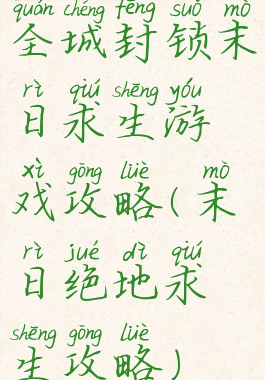 quán chéng fēng suǒ mò
全城封锁末
rì qiú shēng yóu
日求生游
xì gōng lüè mò
戏攻略(末
rì jué dì qiú
日绝地求
shēng gōng lüè
生攻略)